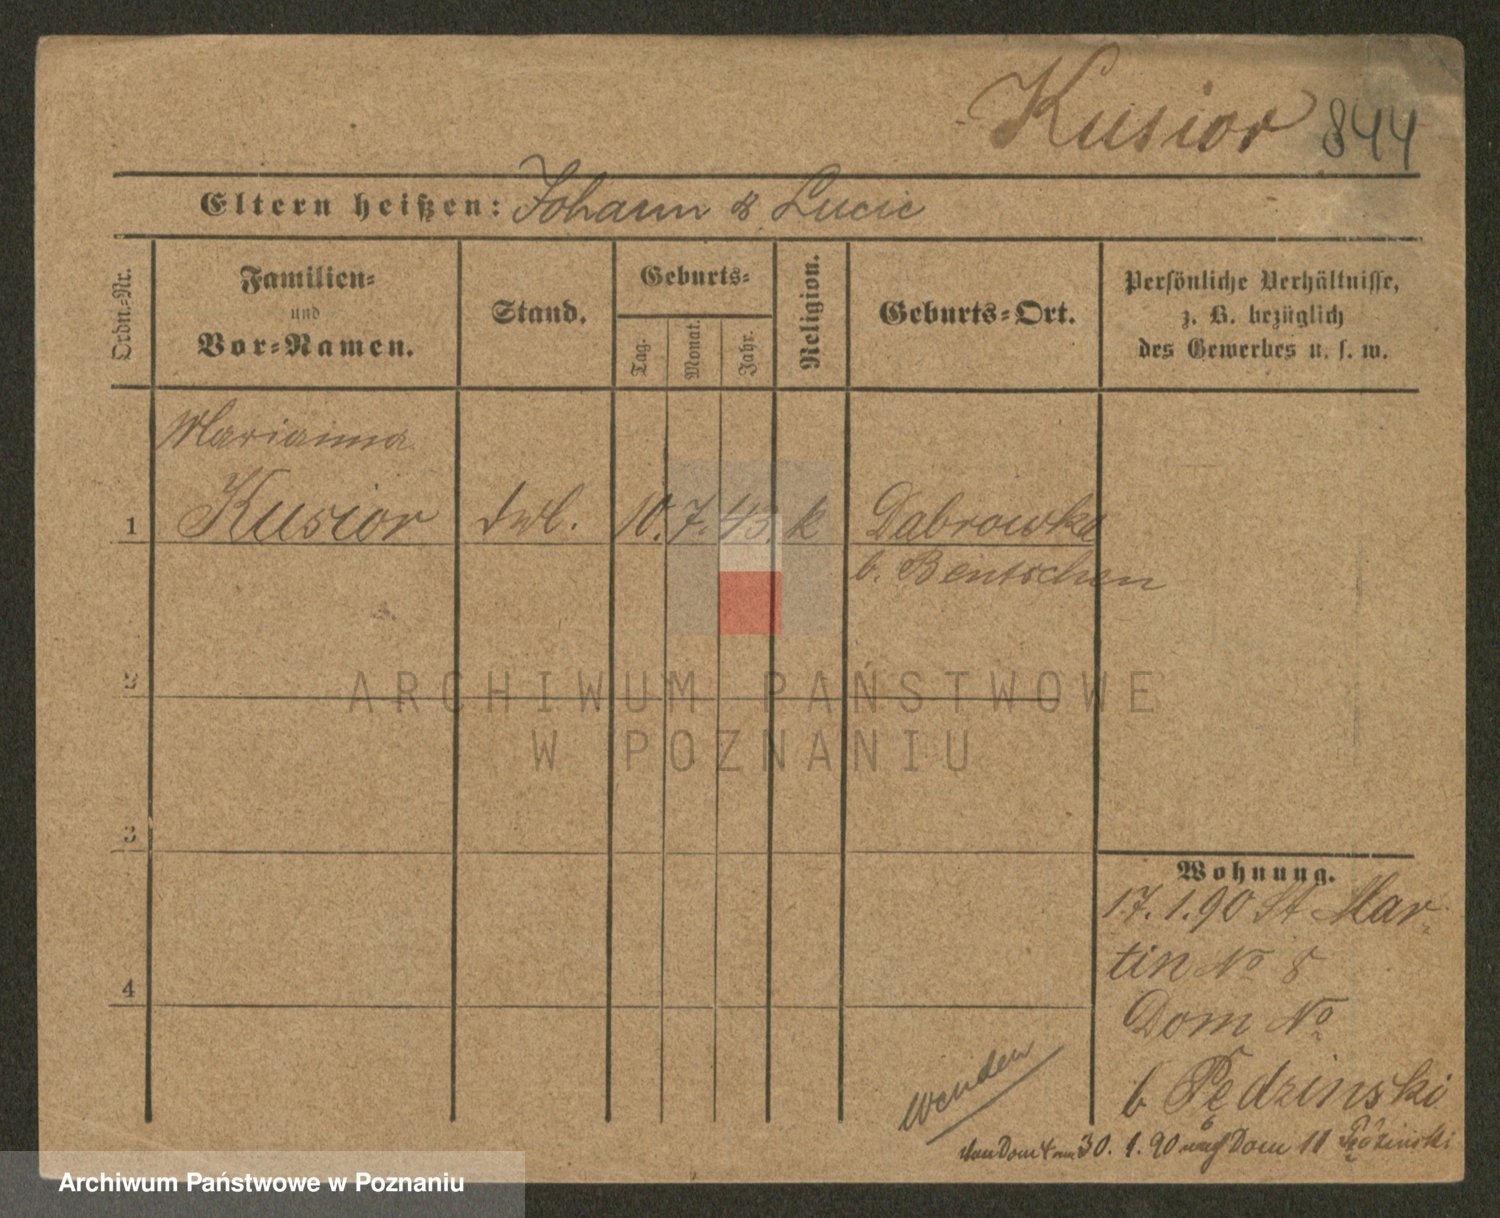 Kusior 844
Eltern heißen: Johann & Lucie
Ordn.-Nr.
Familien-
und
Vor-Namen.
Stand.
Geburts-
Tag.
Monat.
Jahr.
Religion.
Geburts-Ort.
Persönliche Verhältnisse,
z. B. bezüglich
des Gewerbes u. s. w.
Marianna
1 Kusior 10. 7. 43. k Dabrowka
b. Bentschen
2
ARCHIWUM PAŃSTWOWE
W POZNANIU
3
4
Wohnung.
17.1.90 St. Mar-
tin No 8
Dom No
b Pędzinski
wenden
von Dom 4 am 30. 1. 90 nach Dom 11
Archiwum Państwowe w Poznaniu